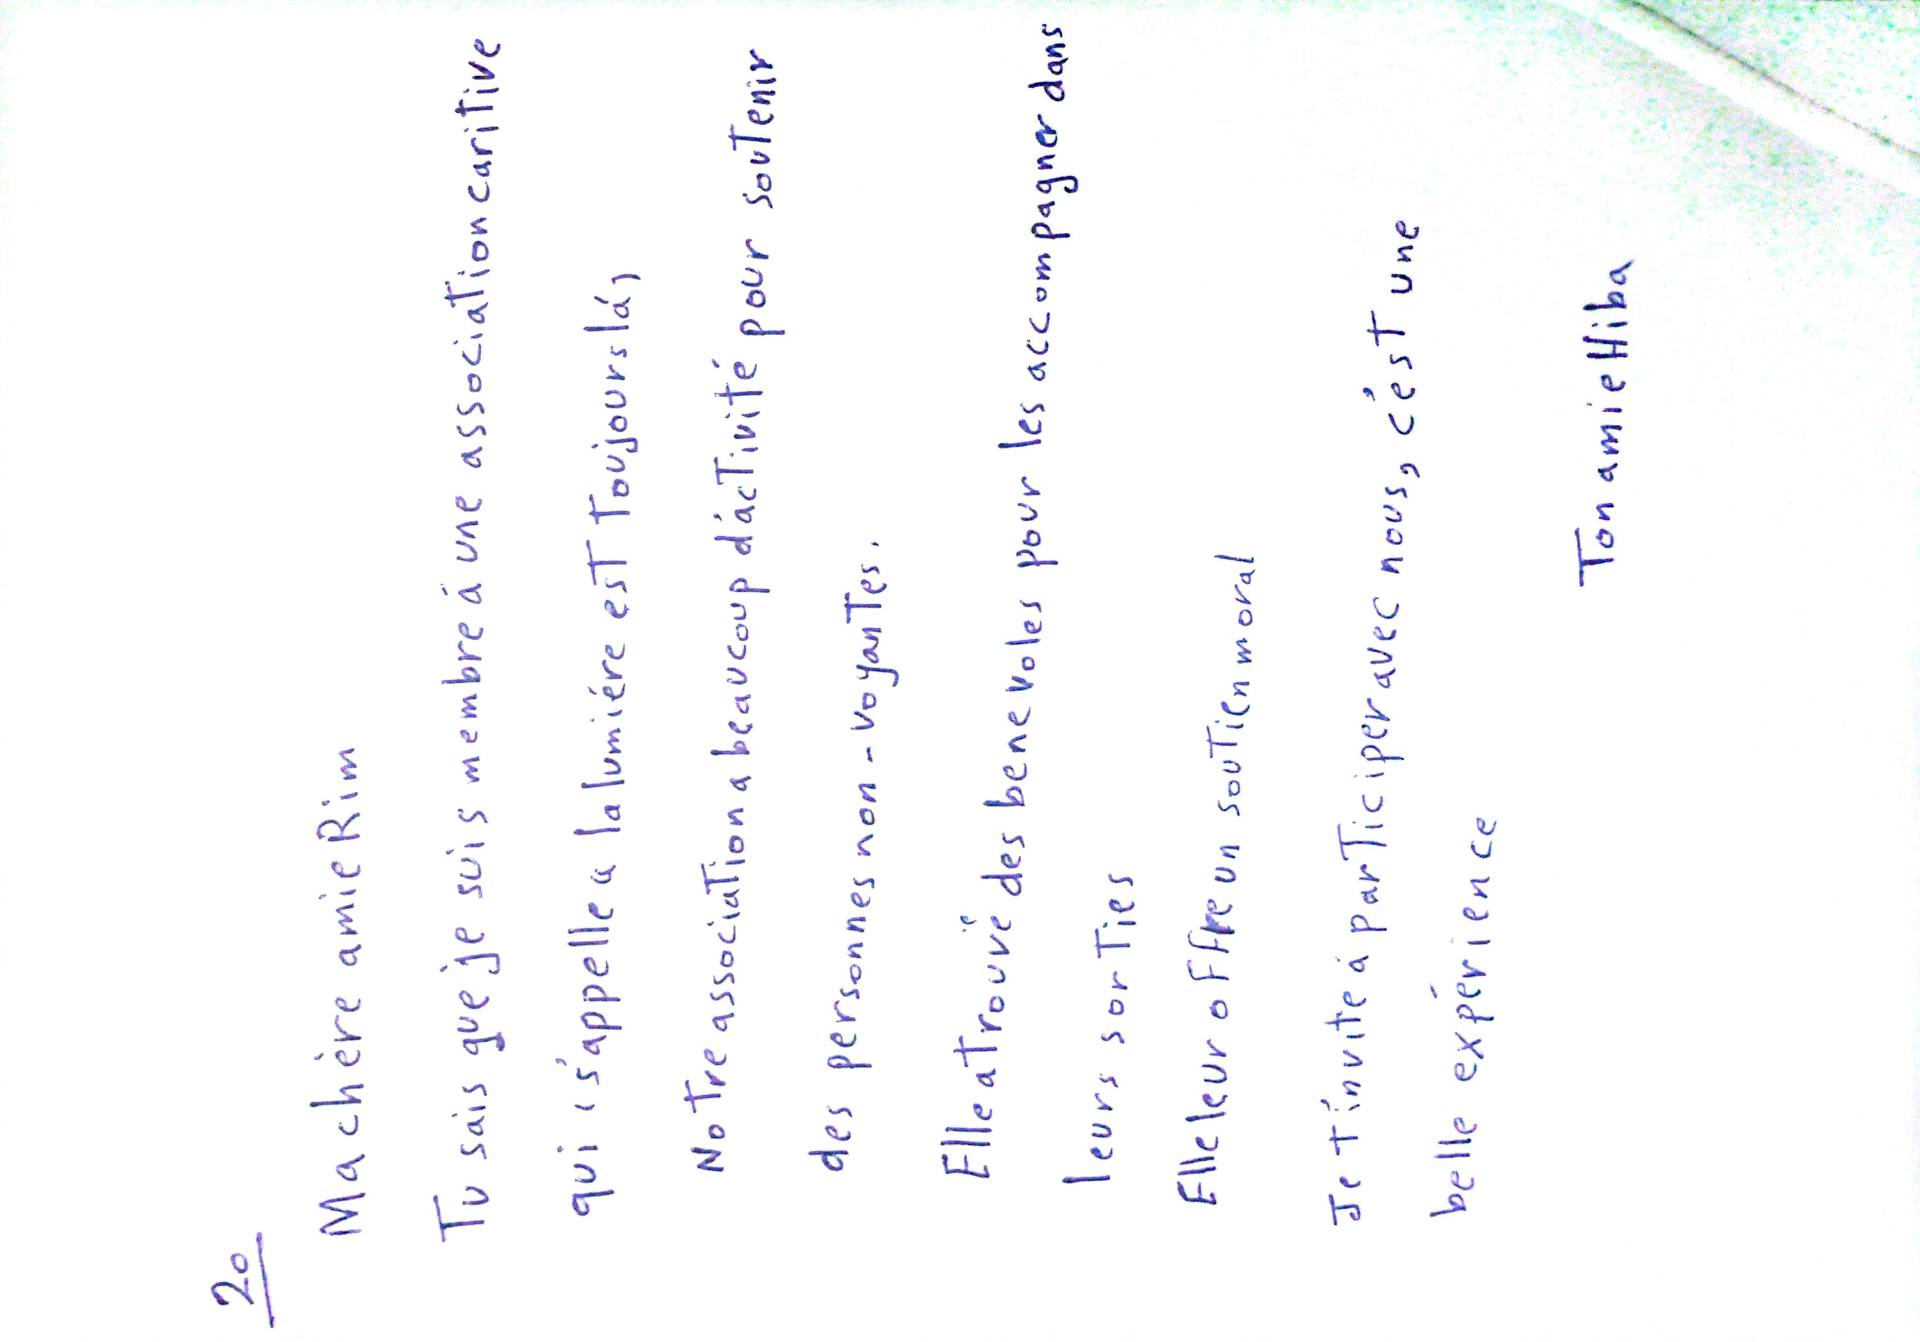 20
Ma chère amie Rim
Tu sais que je suis membre á une association caritive
qui s'appelle a la lumiére est Toujours lá,
Notre association a beaucoup d'activité pour soutenir
des personnes non-voyantes.
Elle a trouvé des benevoles pour les accompagner dans
leurs sorties
Elle leur offre un soutien moral
Je t'invite á participer avec nous, c'est une
belle expérience
Ton amie Hiba